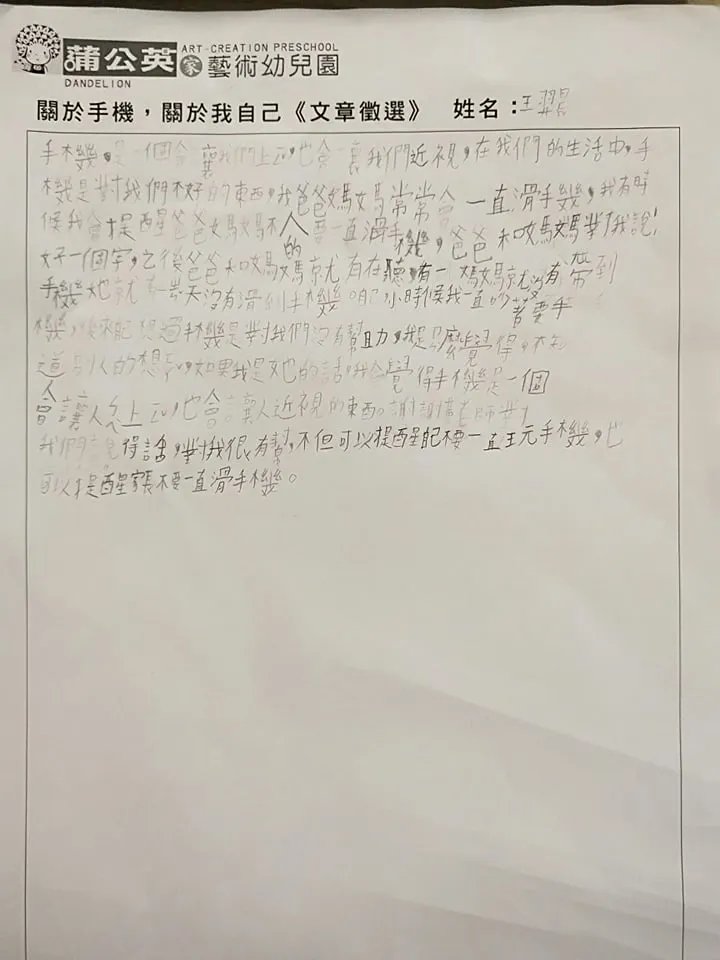 蒲公英家藝術幼兒園
ART-CREATION PRESCHOOL
DANDELION
關於手機，關於我自己《文章徵選》 姓名：王羿
手機，是一個會讓我們上，也會讓我們近視，在我們的生活中，手
機是對我們不好的東西，我爸爸媽媽常常會一直滑手機，我有時
候我會提醒爸爸媽媽不會一直滑手機，爸爸和媽媽對我說！
好一個字，之後爸爸和媽媽就有在聽，有一媽媽就沒有帶到
手機她就一天沒有滑手機。小時候我一直吵著要手
機，後來想過手機是對我們沒有幫助，我是覺得，不知
道別人的想，如果我是她的話，我會覺得手機是一個
會讓人上，也會讓人近視的東西。謝謝老師
我們說得話，對我很有幫，不但可以提醒不要一直玩手機，也
可以提醒家長不要一直滑手機。